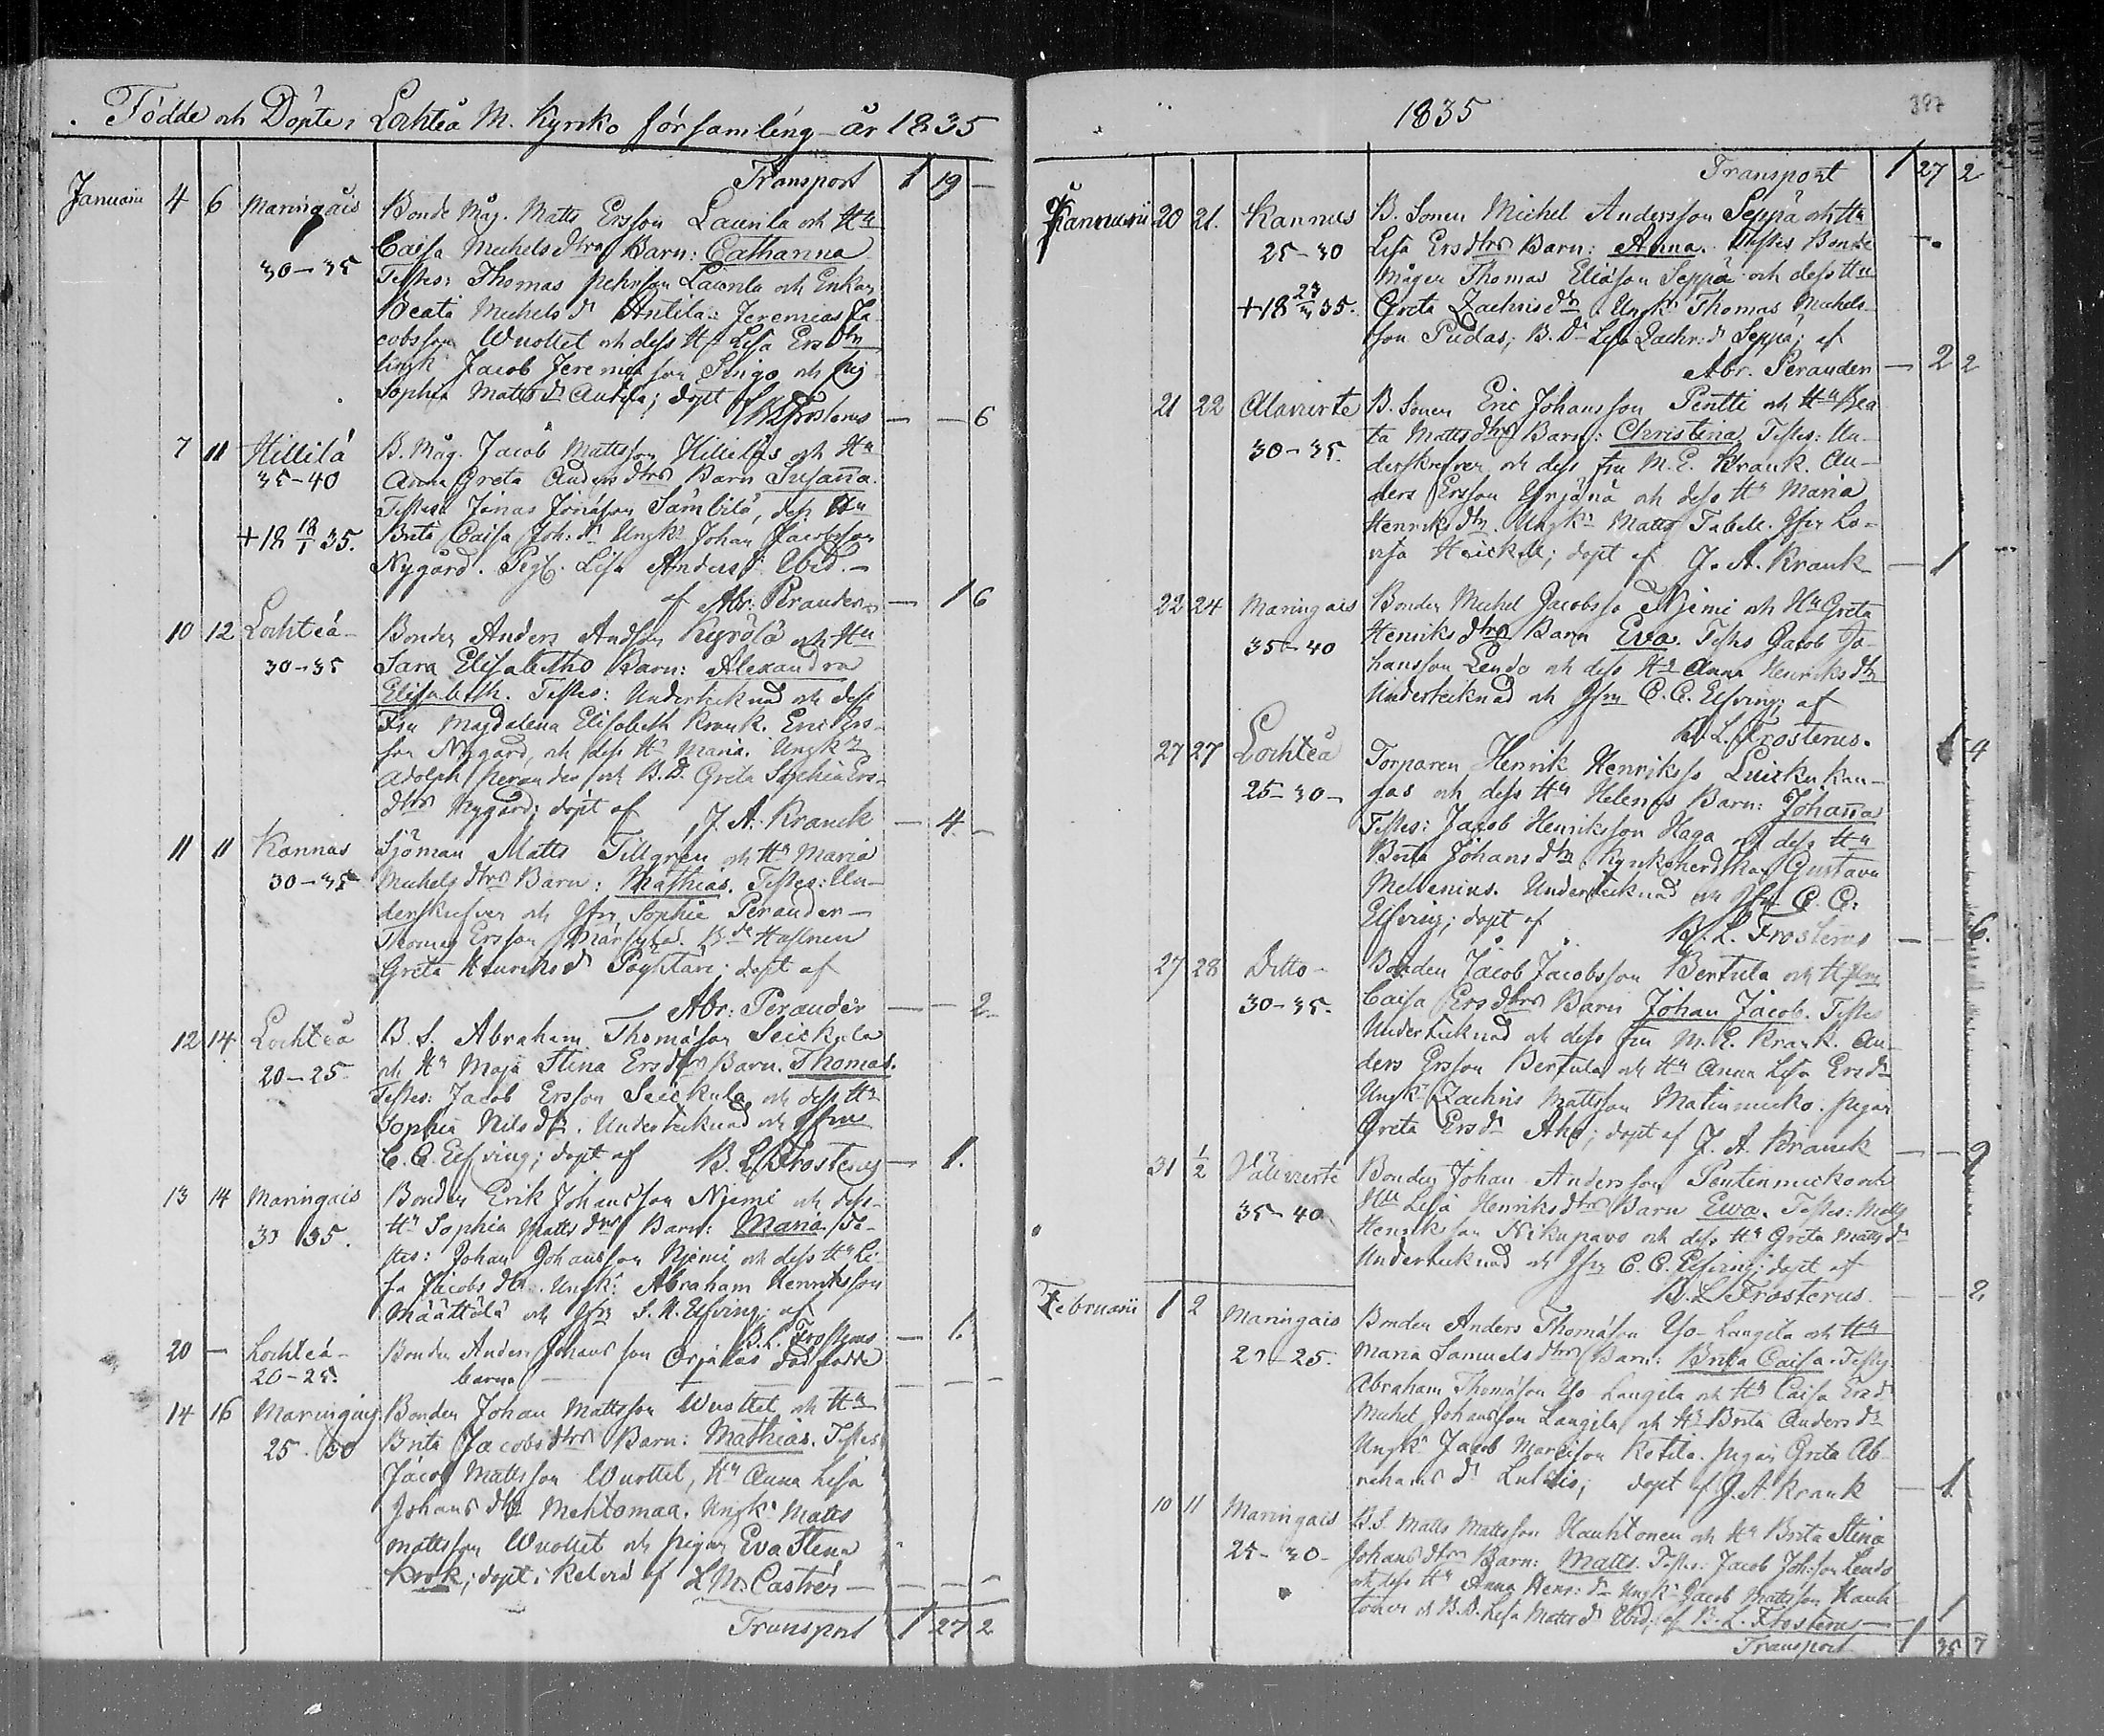 Födde och Döpte i Lochteå M. Kyrko församling år 1835
Transport 1 19 –
Januarii 4 6 Maringais Bonde Måg. Matts Ersson Laurila och Hu
Caisa Michelsdtrs Barn: Catharina
30–35 Testes: Thomas Pehrsson Laurila och Enkan
Beata Michels dr Antila: Jeremias Ja
cobsson Wuollet och dess Hu Lisa Ersdtr
Ungk: Jacob Jeremiasson Singo och pig
Sophia Matts dr Antila; döpt af
B L Frosterus – – 6
7 11 Hillilä B. Måg. Jacob Mattsson Hilliläs och Hu
35–40 Anna Greta Andersdtrs Barn Susanna.
Testes: Jonas Jonasson Sämbilä, dess Hu
+18 18/1 35. Brita Caisa Joh: dr Ungk: Johan Jacobsson
Nygård. Pig. Lisa Anders dr Ibid. –
af Abr: Perander – 1 6
10 12 Lochteå– Bonden Anders Andsson Kyrölä och Hu
30–35 Sara Elisabeths Barn: Alexandra
Elisabeth. Testes: Undertecknad och dess
Fru Magdalena Elisabeth Krank. Eric Ers-
son Nygård, och dess Hu Maria. Ungk:
Adolph Perander och B.D. Greta Sophia Ers-
dtr Nygård; döpt af J. A. Kranck – 4 –
11 11 Kannus Sjöman Matts Tillgren och Hu Maria
30–35 Michelsdtrs Barn: Mathias. Testes: Un-
derskrifven och Jfru Sophie Perander –
Thomas Ersson
Greta Henriks dr ; döpt af
Abr: Perander – – 2–
12 14 Lochteå B. S. Abraham Thomasson Seickula
20–25 och Hu Maja Stina Ersdtrs Barn. Thomas.
Testes: Jacob Ersson Seickula och dess Hu
Sophia Nilsdtr. Undertecknad och Jfru
C. C. Elfving; döpt af B. L. Frosterus – 1.
13 14 Maringais Bonden Erik Johansson Njemi och dess
30 35. Hu Sophia Mattsdtrs Barn: Maria. Te-
stes: Johan Johansson Njemi och dess Hu Li-
sa Jacobs dtr. Ungk: Abraham Henriksson
Määttälä och Jfru S. M. Elfving; af
B. L. Frosterus – 1.
20 – Lochteå– Bonden Anders Johansson Orjalas dödfödde
20–25. barn – – –
14 16 Maringais Bonden Johan Mattsson Wuollet och Hu
25–30 Brita Jacobsdtrs Barn: Mathias. Testes
Jacob Mattsson Wuollet, Hu Anna Lisa
Johansdtr Mehtomaa. Ungk: Matts
Mattsson Wuollet och pigan Eva Stina
Krok; döpt i Kelviå af L M Castrén – – – –
Transport 1 27 2
1835
387
Transport 1 27 2
Januarii 20 21. Kannus B. Sonen Michel Andersson Seppä och Hu
25–30 Lisa Ersdtrs Barn: Anna. Testes Bonde
Mågen Thomas Eliasson Seppä och dess Hu
+18 23/ 35. Greta Zachrisdtr. Ungk: Thomas Michels-
son Pudas; B. D. Lisa Zachr: dr Seppä; af
Abr. Perander – 2 2
21 22 Alaviirte B. Sonen Eric Johansson Pentti och Hu Bea
ta Mattsdtrs Barn: Christina. Testes: Un-
30–35. derskrefven och dess fru M. E. Krank. An-
ders Ersson Yrjänä och dess Hu Maria
Henriksdtr. Ungk: Matts Tabell. Jfru Lo-
visa Heickel; döpt af J. A. Krank – 1
22 24 Maringais Bonden Michel Jacobsso Njemi och Hu Greta
35–40 Henriksdtrs Barn Eva. Testes Jacob Jo-
hansson Lendo och dess Hu Anna Henriksdtr
Undertecknad och Jfru C. C. Elfving; af
B. L. Frosterus. 4
27 27 Lochteå Torparen Henrik Henrikss. Luickukan-
25–30– gas och dess Hu Helenas Barn: Johanna
Testes: Jacob Henriksson Haga och dess Hu
Brita Johansdtr. Kyrkoherdskan Gustava
Melvenius. Undertecknad och Jfru C. C.
Elfving; döpt af B. L. Frosterus – – 6.
27 28 Ditto– Bonden Jacob Jacobsson Bertula och Hustru
30–35. Caisa Ersdtrs Barn Johan Jacob. Testes
Undertecknad och dess fru M. E. Krank. An-
ders Ersson Bertula och Hu Anna Lisa Ersdr
Ungk: Zachris Mattsson Matinmicko. pigan
Greta Ersdr Aho; döpt af J. A. Kranck – – 9
31 1/2 Väliviirte Bonden Johan Andersson Pentinmicko och
35–40 Hu Lisa Henriksdtrs Barn Ewa. Testes: Matts
Henriksson Nikupavo och dess Hu Greta Mattsdr
Undertecknad och Jfru C. C. Elfving; döpt af
B. L. Frosterus. – 2.
Februarii 1 2 Maringais Bonden Anders Thomasson Yso-Laugila och Hu
20–25. Maria Samuelsdtrs Barn: Brita Caisa. Testes
Abraham Thomasson Yso Laugila och Hu Caisa Ersdr
Michel Johansson Laugila och Hu Brita Andersdr
Ungk: Jacob Kotila. pigan Greta Ab-
rahams dr ; döpt af J. A. Krank – 1.
10 11 Maringais B. S. Matts Mattsson Hauhtonen och Hu Brita Stina
25–30– Johansdtrs Barn: Matts. Testes: Jacob Joh:sson Lendo
och dess Hu Anna Henr: dr Ungk: Jacob Mattsson Hauh
tonen och B. D. Lisa Matts dr Ibid; af B. L. Frosterus – 1
Transport 1 35 7